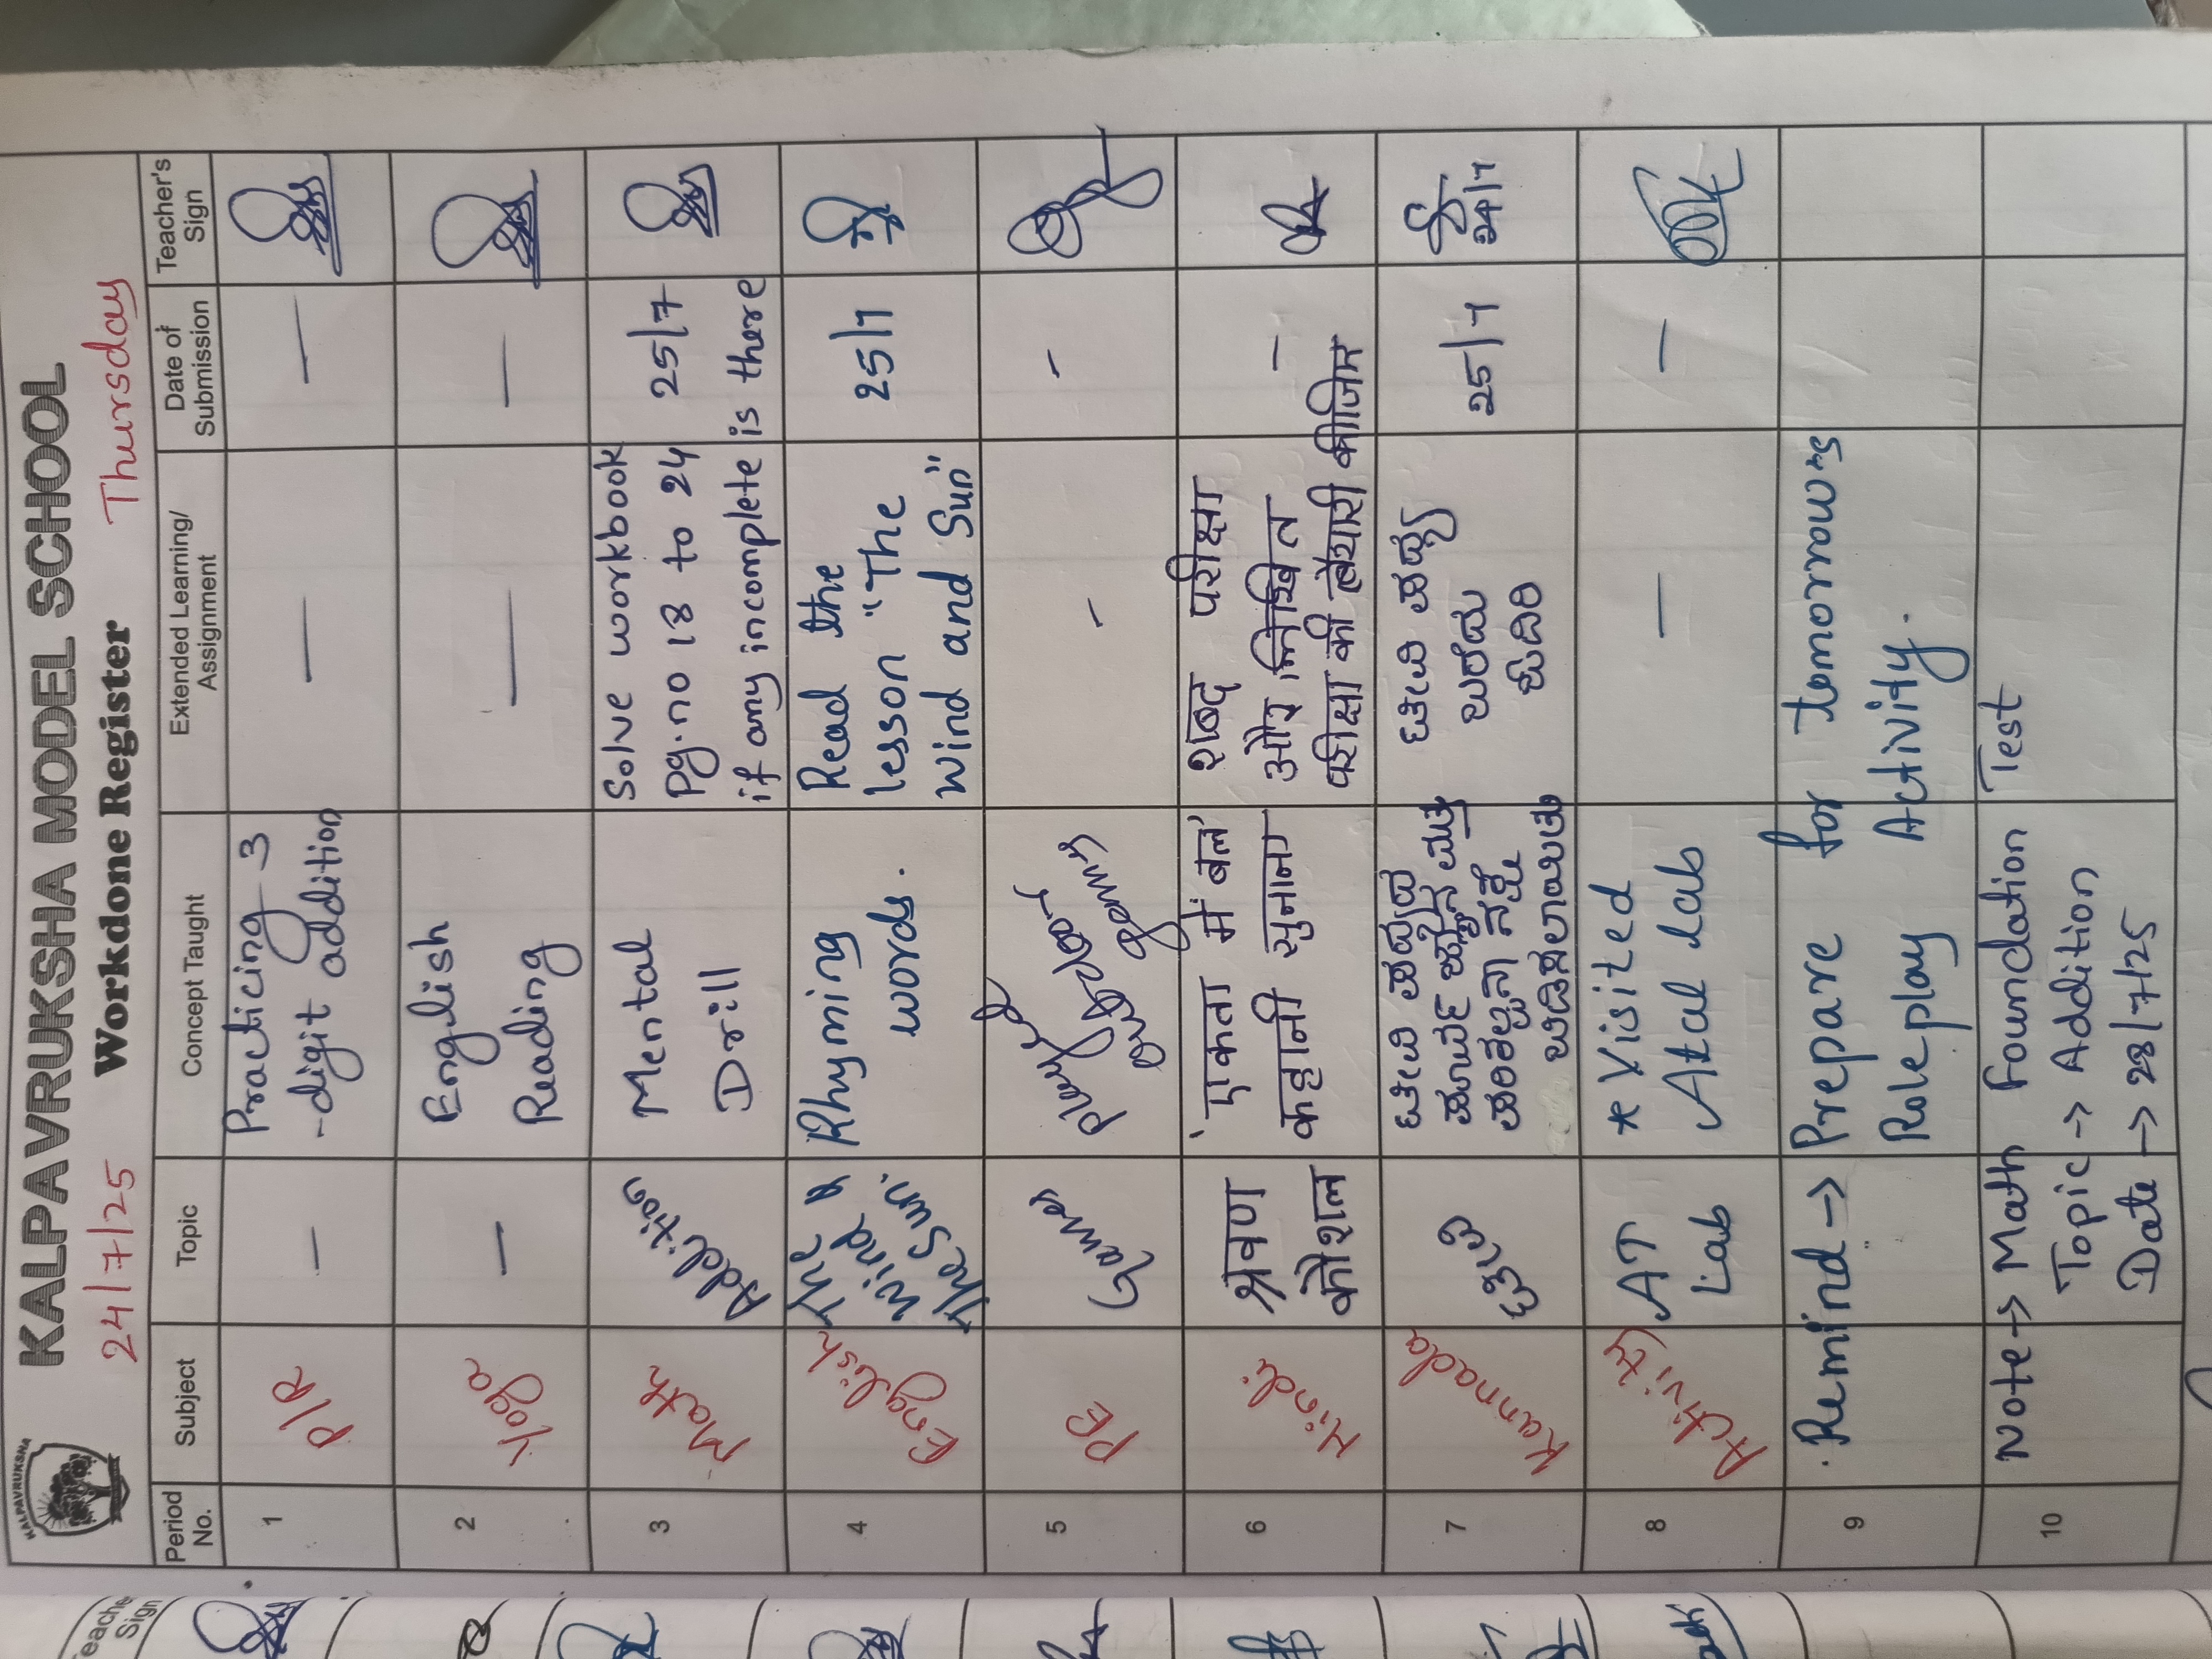 KALPAVRUKSHA
KALPAVRUKSHA MODEL SCHOOL
24/7/25 Workdone Register Thursday
Period No. Subject Topic Concept Taught Extended Learning/ Assignment Date of Submission Teacher's Sign
1 P/R — Practicing 3
-digit addition — —
2 Yoga — English
Reading — —
3 Math Addition Mental
Drill Solve workbook
Pg.no 18 to 24 25/7
if any incomplete is there
4 English The
Wind &
The Sun. Rhyming
words. Read the
lesson "The
Wind and Sun" 25/7
5 PE Games - -
6 Hindi श्रवण
कौशल 'एकता में बल'
कहानी सुनाना शब्द परीक्षा
और लिखित
परीक्षा की तैयारी कीजिए -
7 Kannada 25/7 24/7
8 Activity AT
Lab * Visited
Atal Lab — —
9 Remind → Prepare for tomorrows
Roleplay Activity.
10 Note → Math Foundation Test
Topic → Addition
Date → 28/7/25
Teacher's
Sign